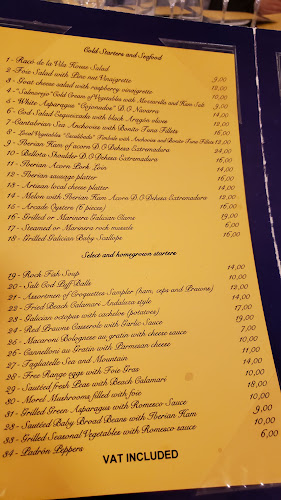 Cold Starters and Seafood
1 - Racó de la Vila House Salad 9,00
2 - Foie Salad with Pine nut Vinaigrette 12,00
3 - Goat cheese salad with raspberry vinaigrette 10,00
4 - "Salmorejo" Cold Cream of Vegetables with Mozzarella and Ham Salt
5 - White Asparagus "Cojonudos" D.O Navarra
6 - Cod Salad Esqueixada with black Aragón olive
7 - Cantabrian Sea Anchovies with Bonito Tuna Fillets
8 - Local Vegetables "Escalibada" Timbale with Anchovies and Bonito Tuna Fillets
9 - Iberian Ham of acorn D.O Dehesa Extremadura
10 - Bellota Shoulder D.O Dehesa Extremadura
11 - Iberian Acorn Pork Loin
12 - Iberian sausage platter
13 - Artisan local cheese platter
14 - Melon with Iberian Ham Acorn D.O Dehesa Extremadura
15 - Arcade Oysters (6 pieces)
16 - Grilled or Marinera Galician Clams
17 - Steamed or Marinera rock mussels
18 - Grilled Galician Baby Scallops 16,00
Select and homegrown starters
19 - Rock Fish Soup 14,00
20 - Salt Cod Puff Balls 10,00
21 - Assortment of Croquettes Sampler (ham, ceps and Prawns) 12,00
22 - Fried Beach Calamari Andaluza style 14,00
23 - Galician octopus with cachelos (potatoes) 17,00
24 - Red Prawns Casserole with Garlic Sauce 19,00
25 - Macaroni Bolognese au gratin with cheese sauce 7,00
26 - Cannelloni au Gratin with Parmesan cheese 10,00
27 - Tagliatelle Sea and Mountain 11,00
28 - Free Range eggs with Foie Gras 14,00
29 - Sautéed fresh Peas with Beach Calamari 10,00
30 - Morel Mushrooms filled with foie 18,00
31 - Grilled Green Asparagus with Romesco Sauce 10,00
32 - Sautéed Baby Broad Beans with Iberian Ham 9,00
33 - Grilled Seasonal Vegetables with Romesco sauce 10,00
34 - Padrón Peppers 6,00
VAT INCLUDED